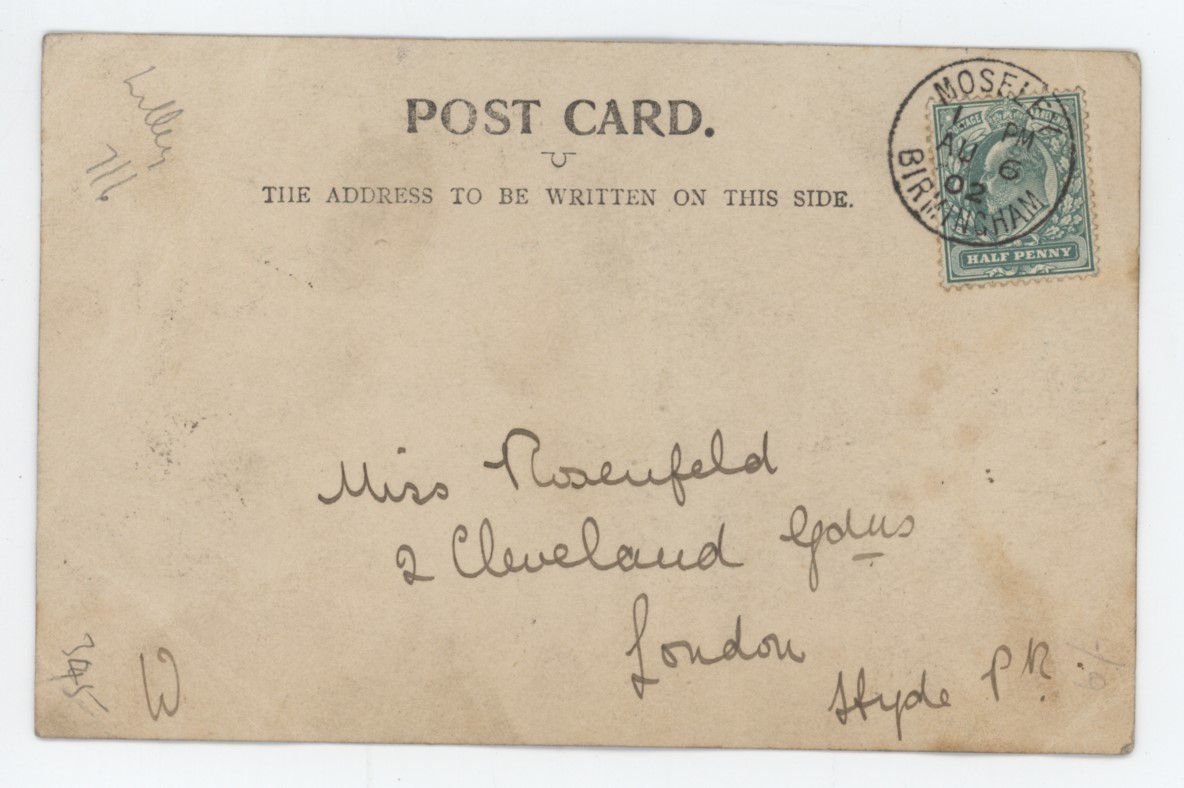 POST CARD.
THE ADDRESS TO BE WRITTEN ON THIS SIDE.
MOSELEY
1 PM
AU 6
02
BIRMINGHAM
POSTAGE REVENUE
HALF PENNY
Miss Rosenfeld
2 Cleveland Gdns
London
Hyde Pk
W
Lilley
7/6
345
6/-